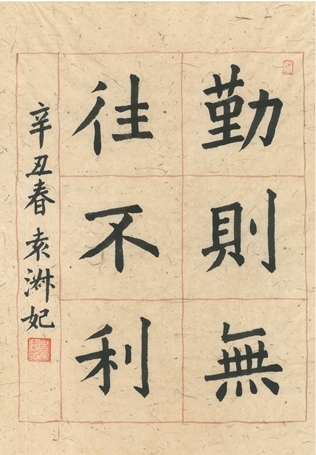 勤則無
往不利
辛丑春 袁淑妃